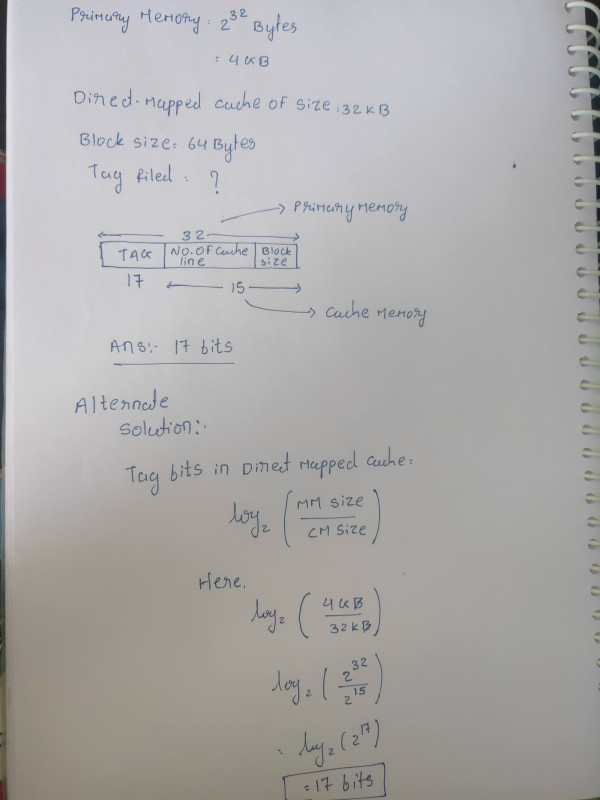 Primary Memory: 2^32 Bytes
= 4GB
Direct-Mapped cache of size: 32KB
Block size: 64 Bytes
Tag filed = ?
32
Primary Memory
TAG No. of Cache line Block size
17
15
Cache Memory
Ans:- 17 bits
Alternate
Solution:-
Tag bits in Direct Mapped Cache:
log₂ (MM size / CM size)
Here,
log₂ (4GB / 32KB)
log₂ (2^32 / 2^15)
= log₂ (2^17)
= 17 bits